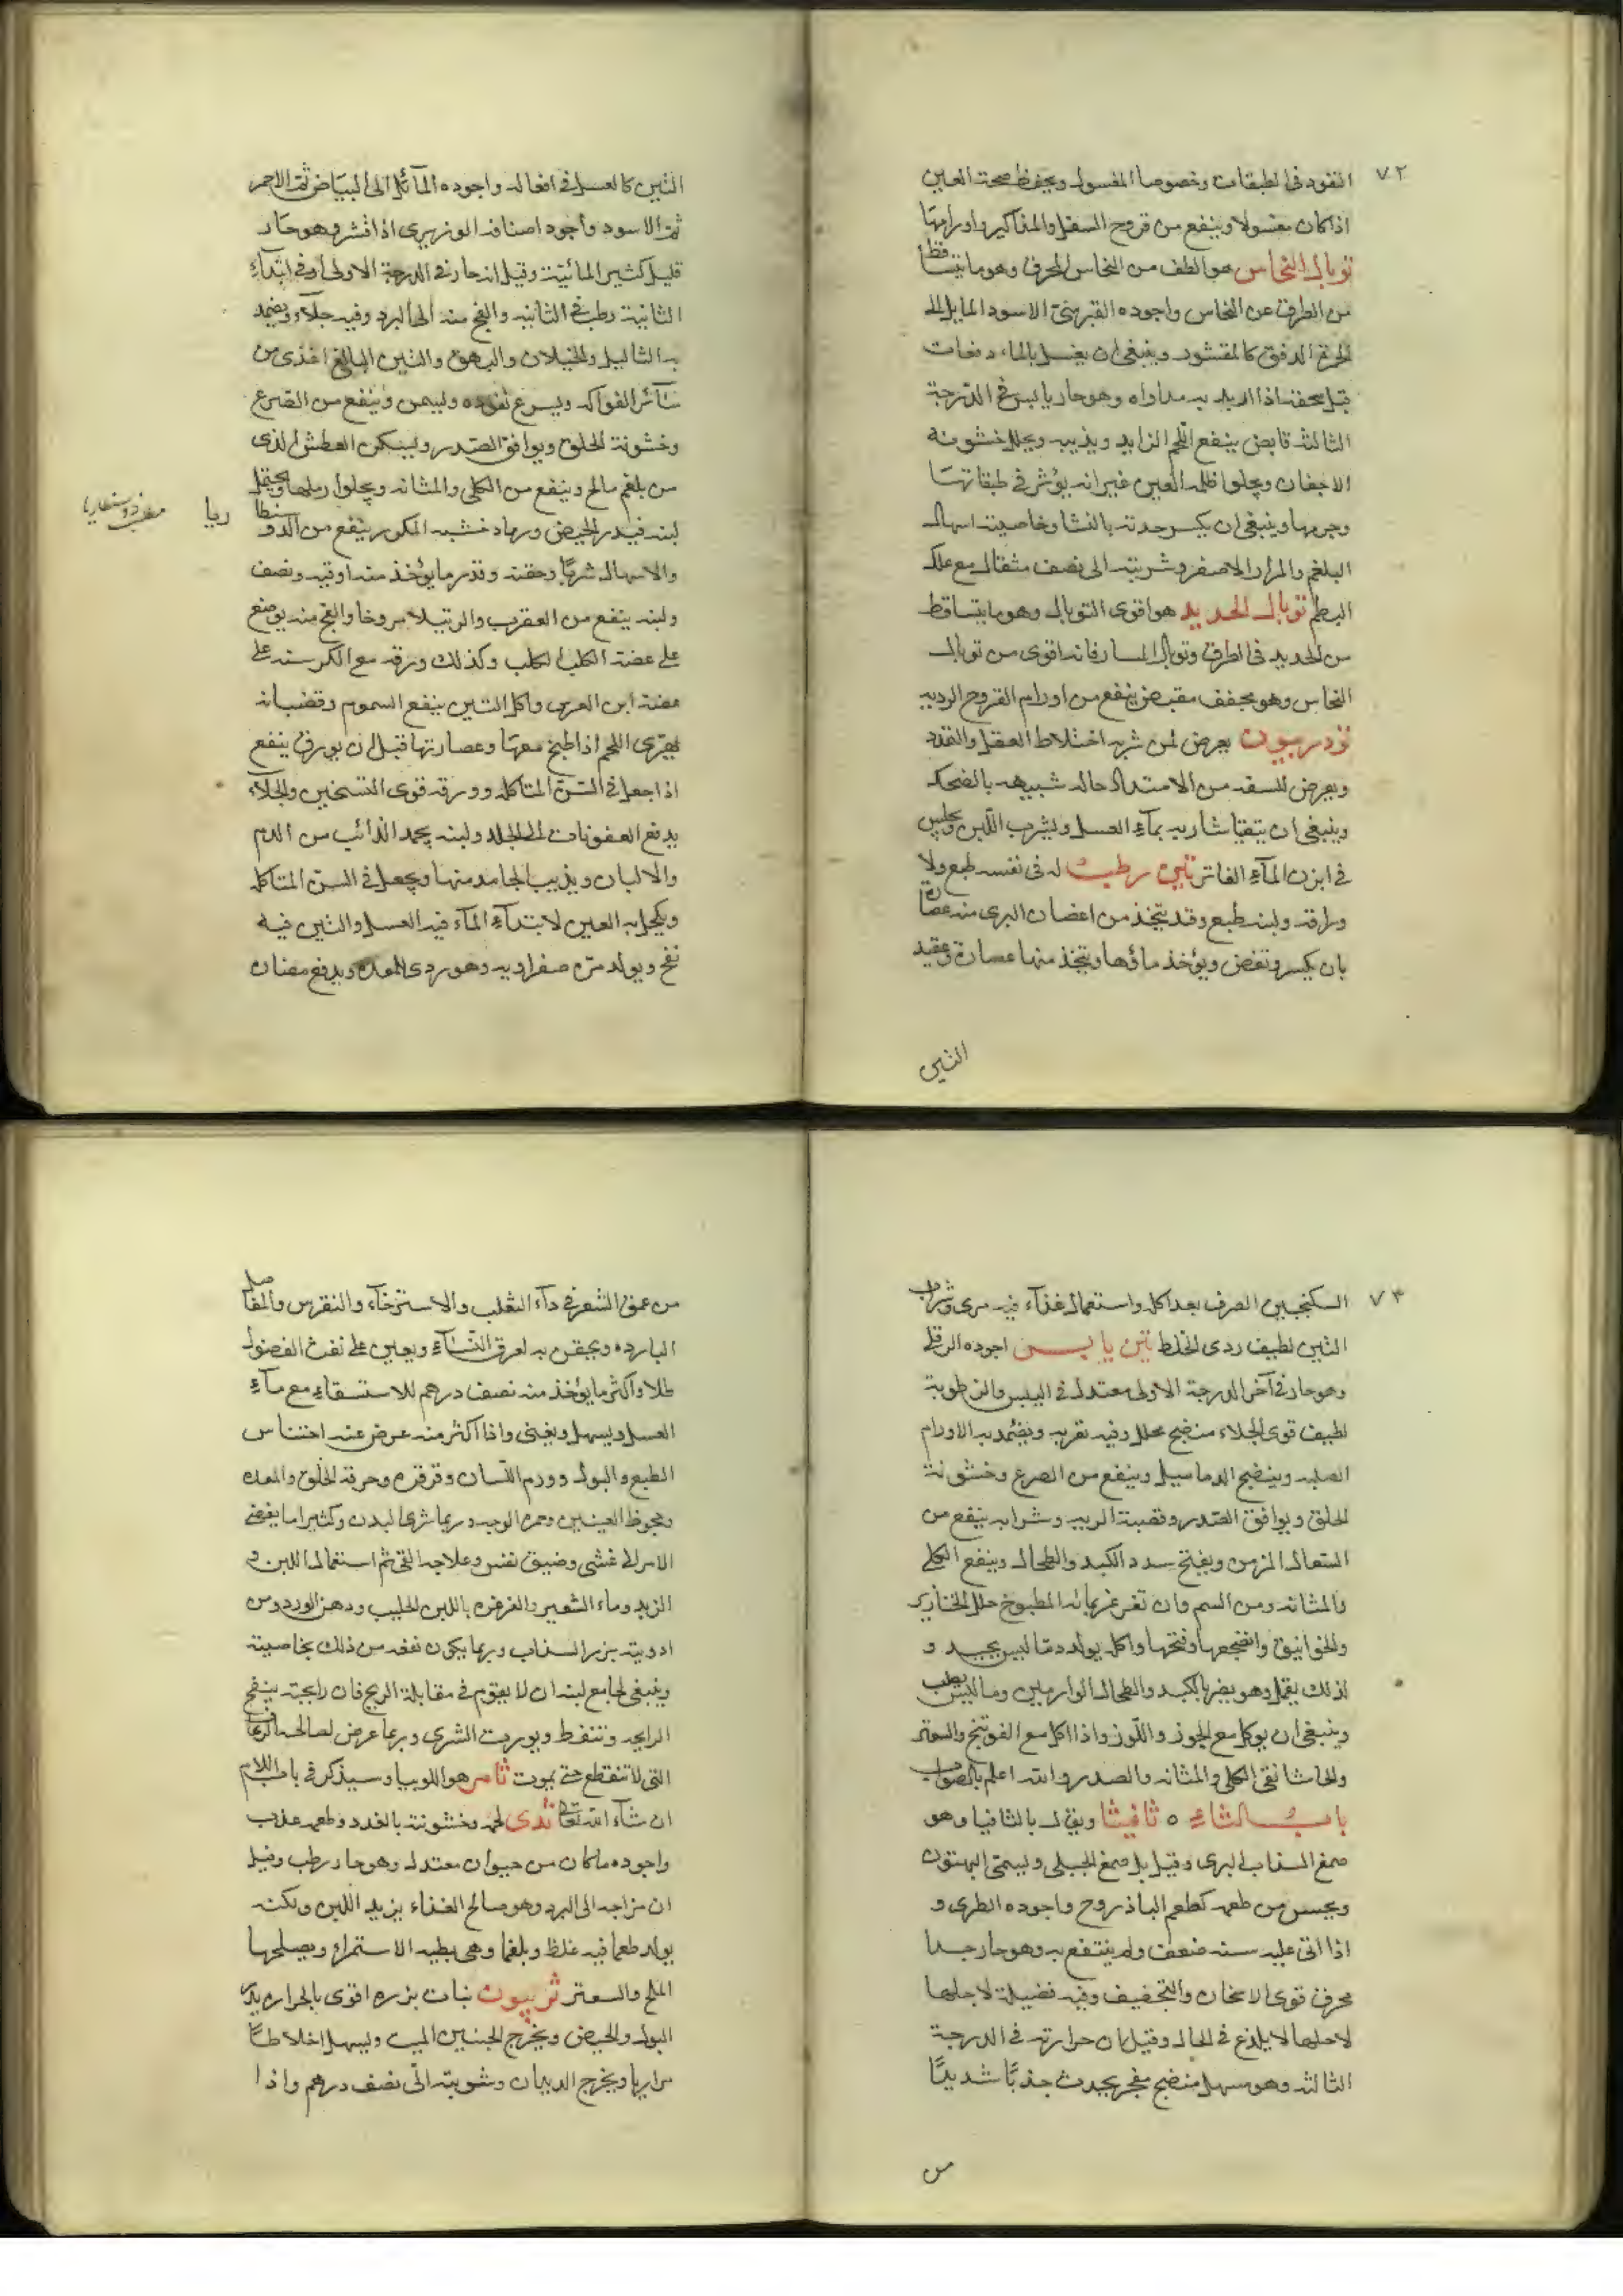 ٧٢
النفود فى الطبقات وخصوصا المغسول ويحفظ صحة العين
اذا كان مغسولا وينفع من قروح السفل والمذاكير واورامها
توبال النحاس هو الطف من النحاس المحرق وهو ما يتساقط
من الطرق عن النحاس واجوده القبرسى الاسود المايل الى
الحمرة الدقق كالمقشود وينبغى ان يغسل بالماء دفعات
قبل سحقه اذا اريد به مداواه وهو حار يابس فى الدرجة
الثالثه قابض ينفع اللحم الزايد ويذيبه ويحلل خشونه
الاجفان ويجلوا ظلمه العين غير انه يؤثر فى طبقاتها
وجرمها وينبغى ان يكسر حدته بالنشا وخاصيته اسهال
البلغم والمرار الاصفر وشربته الى نصف مثقال مع علك
البطم توبال الحديد هو اقوى التوبال وهو ما يتساقط
من الحديد فى الطرق وتوبال المسا رفانه اقوى من توبال
النحاس وهو مجفف مقبض ينفع من اورام القروح الرديه
تودريون يعرض لمن شربه اختلاط العقل والغدد
ويعرض للسفه من الامتداد حاله شبيهه بالضحك
وينبغى ان يتقيا شاربه بماء العسل ويشرب اللبن ويجلس
فى ابزن الماء الفاتر تين رطب له فى نفسه طبع ولا
وراقه ولبنه طبع وقد يتخذ من اغصان البرى منه عصارة
بان يكسر وتغض ويؤخذ ماؤها ويتخذ منها عصارة وعقيد
التين
التين كالعسل فى افعاله واجوده المآئل الى البياض ثم الاحمر
ثم الاسود وأجود اصنافه الوزيرى اذا قشر وهو حار
قليل كثير المائية وقيل انه حار فى الدرجة الاولى او فى ابتداء
الثانية رطب فى الثانيه والفج منه الى البرد وفيه جلاء ويضمد
به الثاليل والخيلان والبهق والتين البالغ اغذى من
سآئر الفواكه ويسرع نفوده ويسمن وينفع من الصرع
وخشونة الحلق ويوافق الصدر ويسكن العطش الذى
من بلغم مالح وينفع من الكلى والمثانه ويجلوا رملها ويحتمل
لبنه فيدر الحيض ورماد خشبه المكرر ينفع من الدوسنطاريا
والاسهال شربًا وحقنه وقدر ما يؤخذ منه اوقيه ونصف
ولبنه ينفع من العقرب والرتيلا مروخا والفج منه يوضع
على عضة الكلب الكلب وكذلك ورقه مع الكرسنه على
عضة ابن العرس واكل التين ينفع السموم وقضبانه
يهرى اللحم اذا طبخ معها وعصارتها قبل ان يورق ينفع
اذا جعل فى السن المتاكله وورقه قوى التسخين والجلاء
يدفع العفونات الى الجلد ولبنه يجمد الذائب من الدم
والالبان ويذيب الجامد منها ويجعل فى السن المتاكله
ويكحل به العين لابتداء الماء فيه العسل والتين فيه
نفخ ويولد مرّه صفراويه وهو ردى للمعده ويدفع مضاره
٧٣
السكنجبين الصرف بعد اكله واستعمال غذاء فيه مرى وشراب
التين لطيف ردى الخلط تين يابس اجوده الرقلى
وهو حار فى آخر الدرجة الاولى معتدل فى اليبس والرطوبة
لطيف قوى الجلاء منضج محلل وفيه تغريه ويضمد به الاورام
الصلبه وينضج الدماميل وينفع من الصرع وخشونة
الحلق ويوافق الصدر وقصبة الريه وشرابه ينفع من
السعال المزمن ويفتح سدد الكبد والطحال وينفع الكلى
والمثانه ومن السم وان تغرغر بمائه المطبوخ حلل الخنازير
والخوانيق وانضجها وفتحها واكله يولد دمّا ليس بجيد و
لذلك يقمل وهو يضر بالكبد والطحال الوارمين وما ليس بصلب
وينبغى ان يوكل مع الجوز واللوز واذا اكل مع الفوتنج والسعتر
والحاشا نقى الكلى والمثانه والصدر والله اعلم بالصواب
باب الثاء ٥ ثافيثا ويقال بالثافيا وهو
صمغ السذاب البرى وقيل بل صمغ الجبلى ويسمى الينتون
ويحسن من طعمه كطعم الباذروح واجوده الطرى و
اذا اتى عليه سنه ضعف ولم ينتفع به وهو حار جدا
محرق قوى الاسخان والتجفيف وفيه فضيلة لاجلها
لاجلها لا يلذع فى الحال وقيل ان حرارته فى الدرجة
الثالثه وهو مسهل منضج مفجر يجدث جذبًا شديدًا
من
من عمق الشعر فى داء الثعلب والاسترخاء والنقرس والمفاصل
البارده ويحقن به لعرق النساء ويعين على نفث الفضول
طلا واكثر ما يؤخذ منه نصف درهم للاستسقاء مع ماء
العسل ويسهل ويغثى واذا اكثر منه عرض عنه احتباس
الطبع والبول وورم اللسان وقرقره وحرقة الحلق والمعده
وجحوظ العينين وحمره الوجه وربما شرى البدن وكثيرا ما يفضى
الامر الى غشى وضيق نفس وعلاجه القى ثم استعمال اللبن و
الزبد وماء الشعير والغرغره باللبن الحليب ودهن الورد ومن
ادويته بزر السذاب وربما يكون نفعه من ذلك بخاصيته
وينبغى لجامع لبنه ان لا يقوم فى مقابلة الريح فان رايحته ينفخ
الرايحه وتنفط ويورث الشرى وربما عرض لصاحبه الحمى
التى لا تنقطع حتى يموت ثامر هو اللوبيا وسيذكر فى باب اللام
ان شآء الله تعالى ثدى لحمه وخشونته بالغدد وطعمه عذب
واجوده ما كان من حيوان معتدل وهو حار رطب وقيل
ان مزاجه الى البرد وهو صالح الغذاء يزيد اللبن ولكنه
يولد طعما فيه غلظ وبلغما وهى بطيه الاستمراء ويصلحها
الملح والسعتر ثربيون نبات بزره اقوى بالحراره يدر
البول والحيض ويخرج الجنين الميت ويسهل اخلاطًا
مراريا ويخرج الديدان وشربته الى نصف درهم واذا